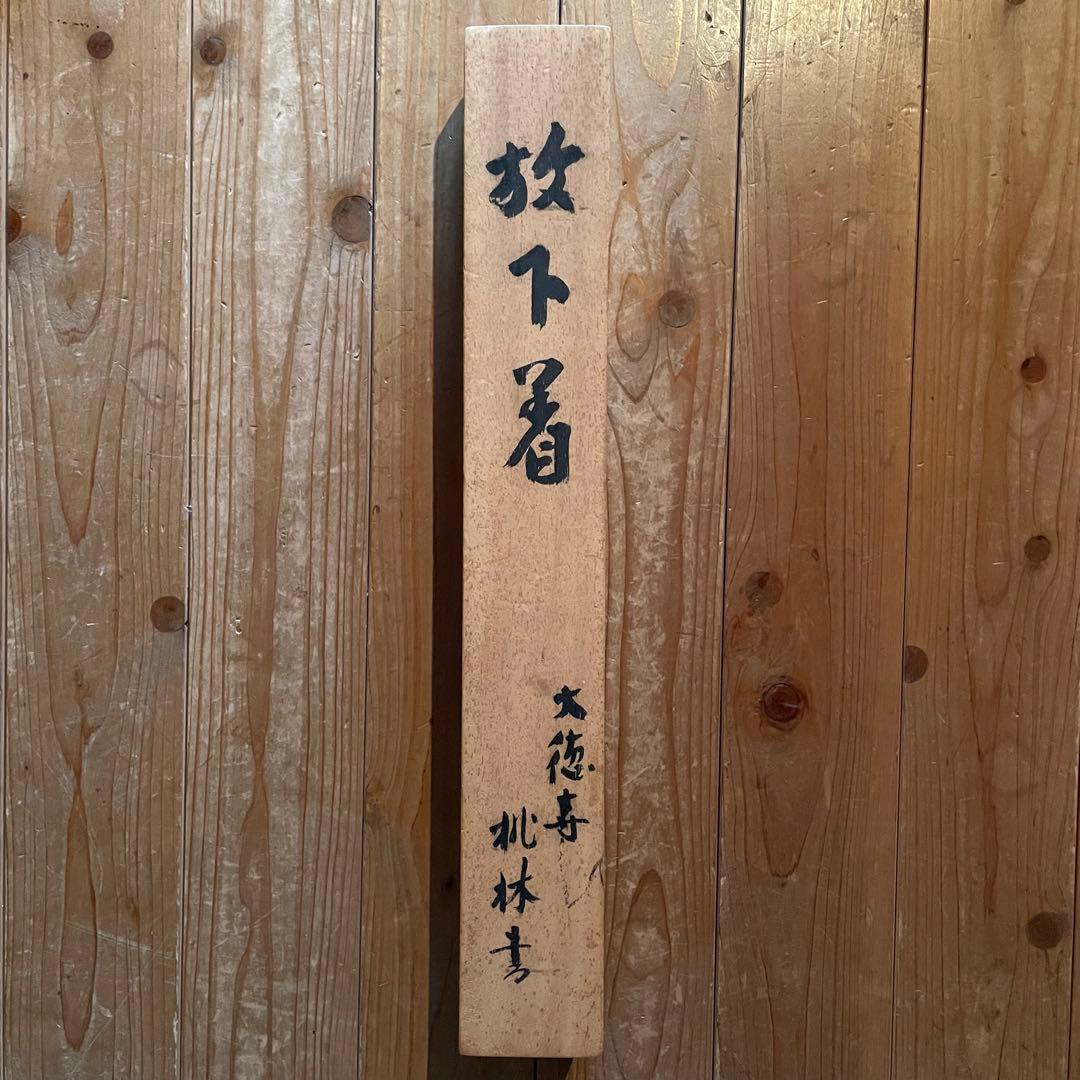 放下着
大徳寺
桃林書